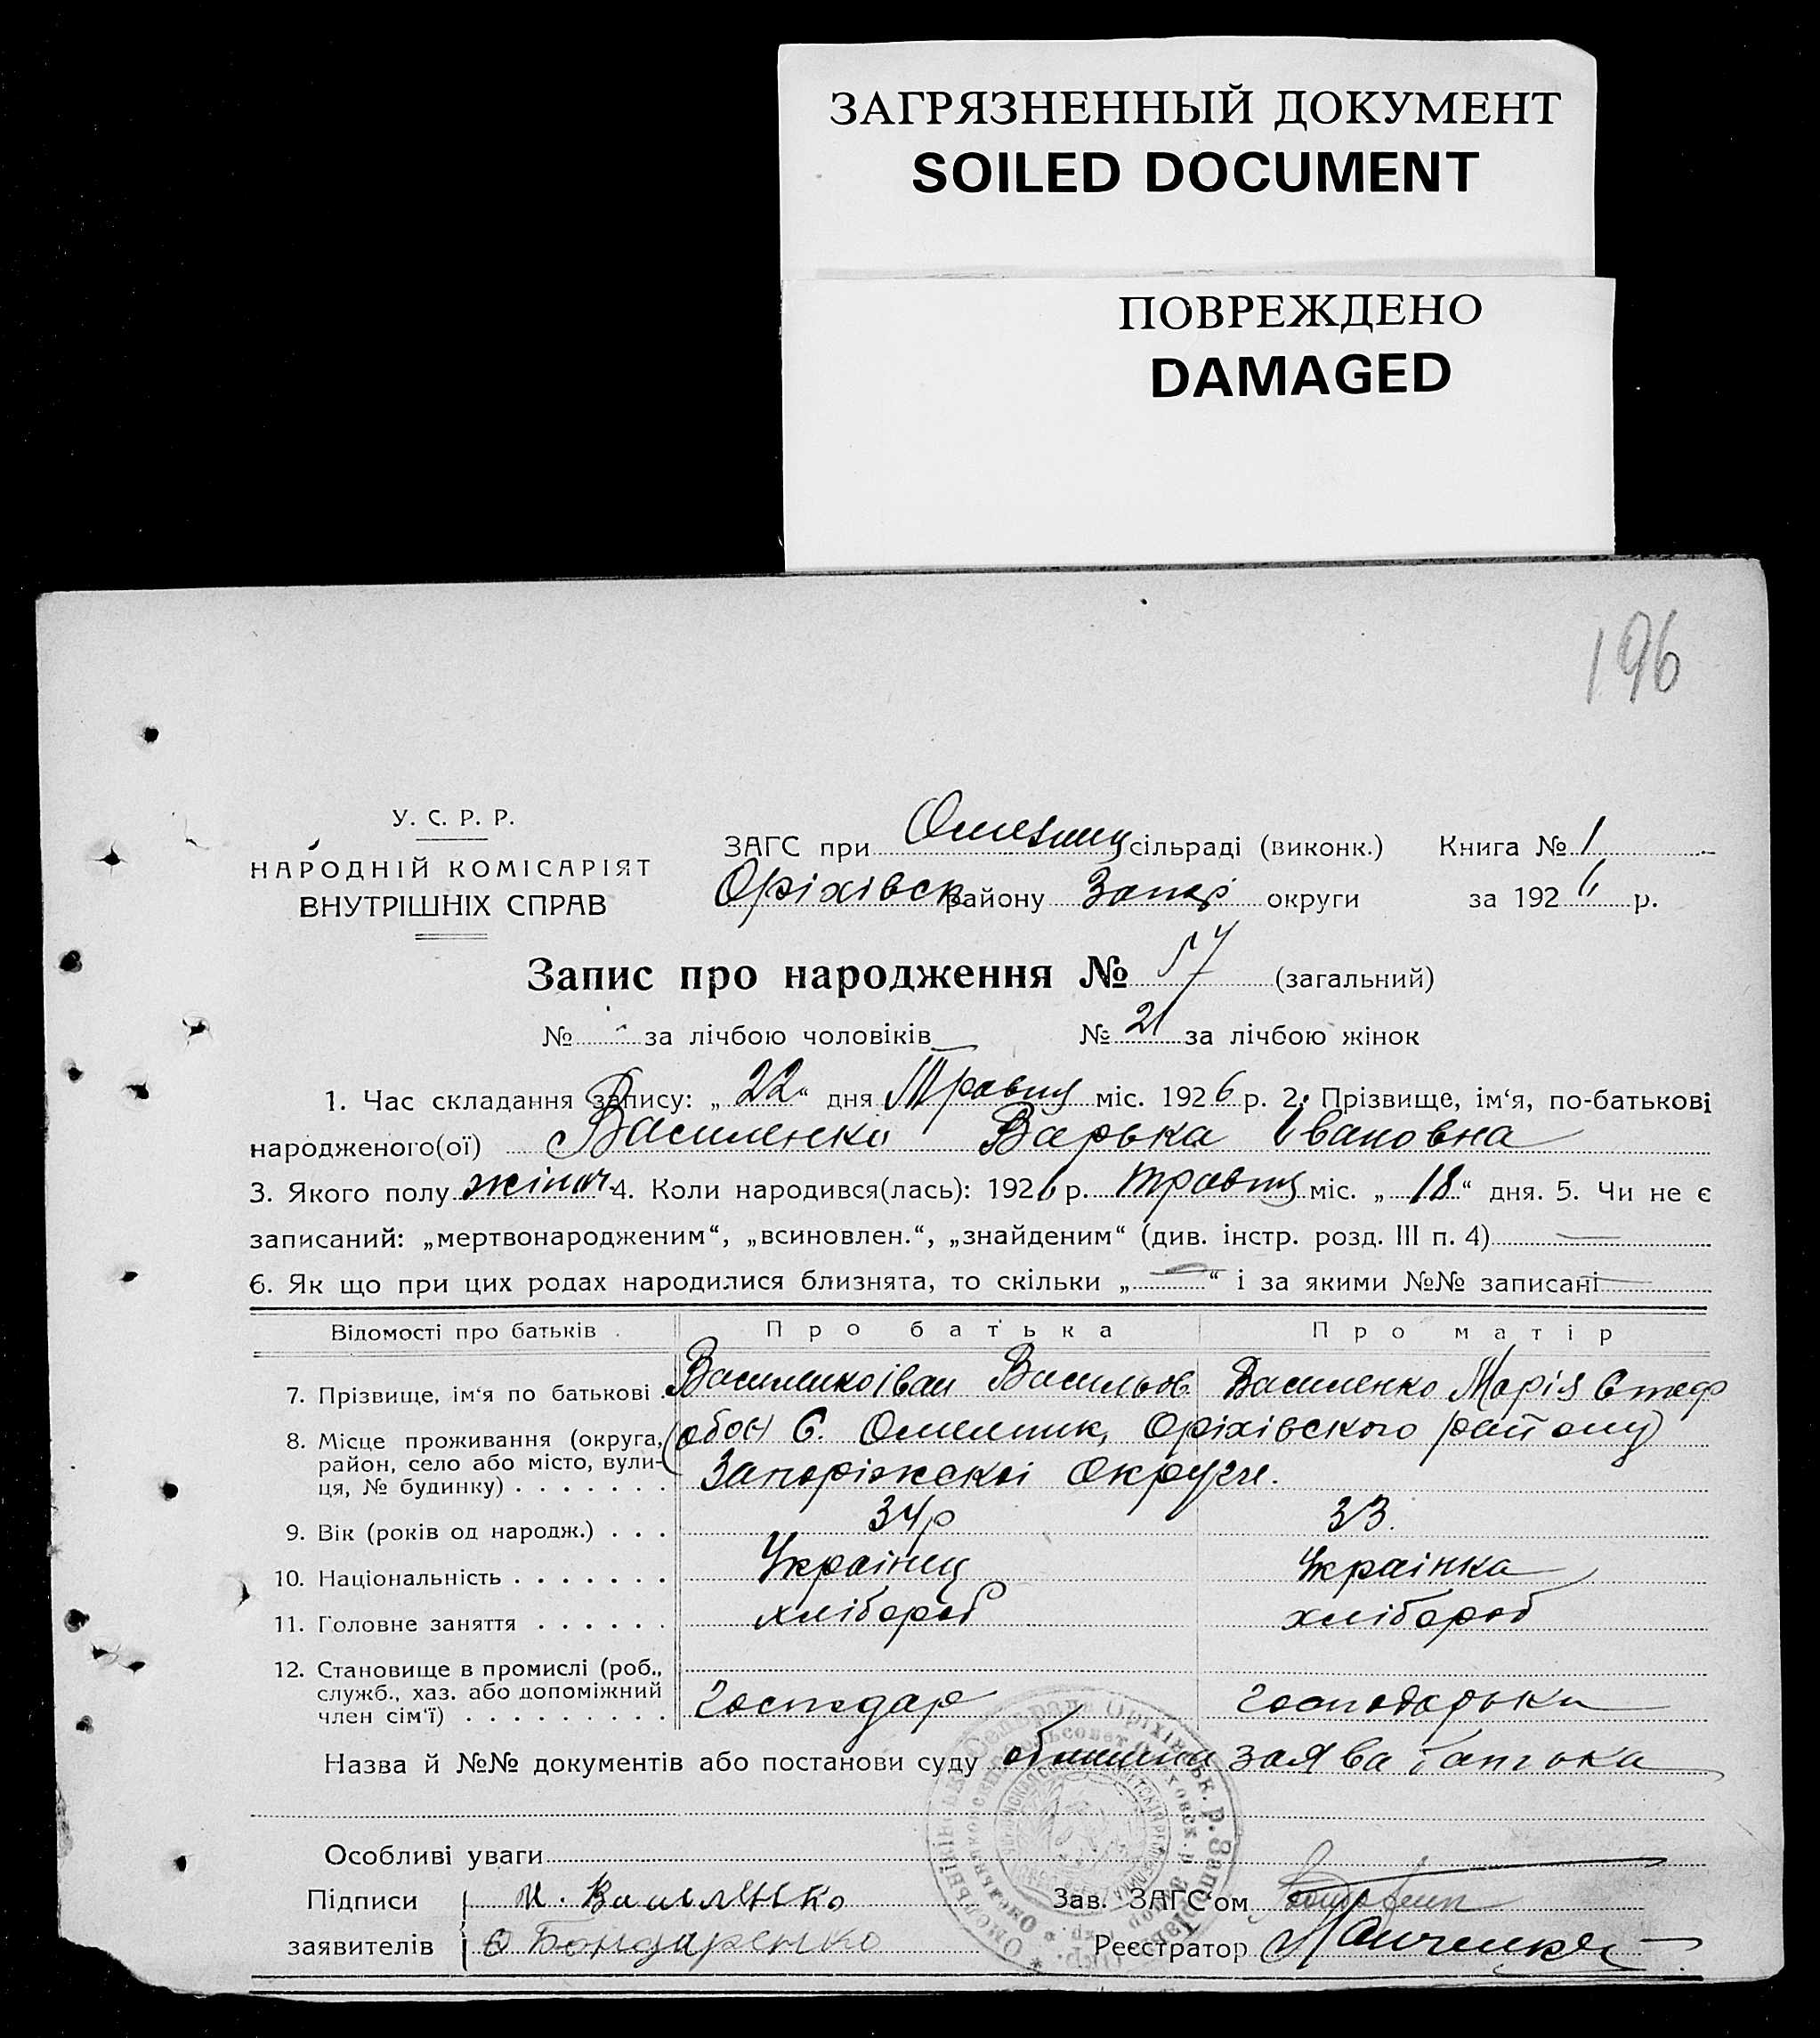 ЗАГРЯЗНЕННЫЙ ДОКУМЕНТ
SOILED DOCUMENT
ПОВРЕЖДЕНО
DAMAGED
196
У. С. Р. Р.
НАРОДНІЙ КОМІСАРІЯТ
ВНУТРІШНІХ СПРАВ
ЗАГС при сільраді (виконк.) Книга № 1
Оріхівск району Запор округи за 1926 р.
Запис про народження № 57 (загальний)
№ - за лічбою чоловіків № 21 за лічбою жінок
1. Час складання запису: „22“ дня Травня міс. 1926 р. 2. Прізвище, ім‘я, по-батькові
народженого(ої) Василенко Варька Івановна
3. Якого полу жіноч. 4. Коли народився(лась): 1926 р. травня міс. „18“ дня. 5. Чи не є
записаний: „мертвонародженим“, „всиновлен.“, „знайденим“ (див. інстр. розд. III п. 4) —
6. Як що при цих родах народилися близнята, то скільки „—“ і за якими №№ записані —
Відомості про батьків Про батька Про матір
7. Прізвище, ім‘я по батькові Василенко Іван Васильов. Василенко Марія Стеф
8. Місце проживання (округа, район, село або місто, вулиця, № будинку) обоє С. Омельник, Оріхівського району
Запоріжскоі Округи.
9. Вік (років од народж.) 34р 33.
10. Національність Украінец Украінка
11. Головне заняття хлібороб хлібороб
12. Становище в промислі (роб., служб., хаз. або допоміжний член сім‘ї) Господар Господарька
Назва й №№ документів або постанови суду заява батька
Особливі уваги
Підписи И. Василенко Зав. ЗАГС‘ом
заявителів Бондаренко Реєстратор